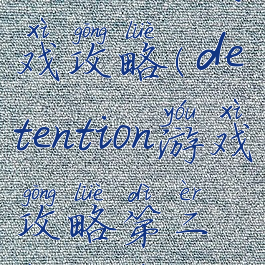 xì gōng lüè
戏攻略(de
yóu xì
tention游戏
gōng lüè dì èr
攻略第二